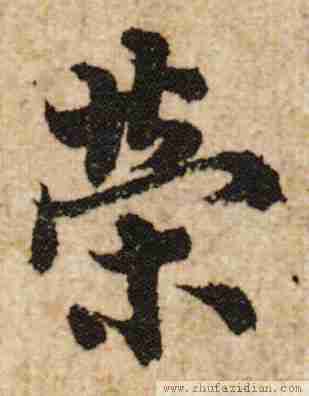 榮
www.zhufazidian.com